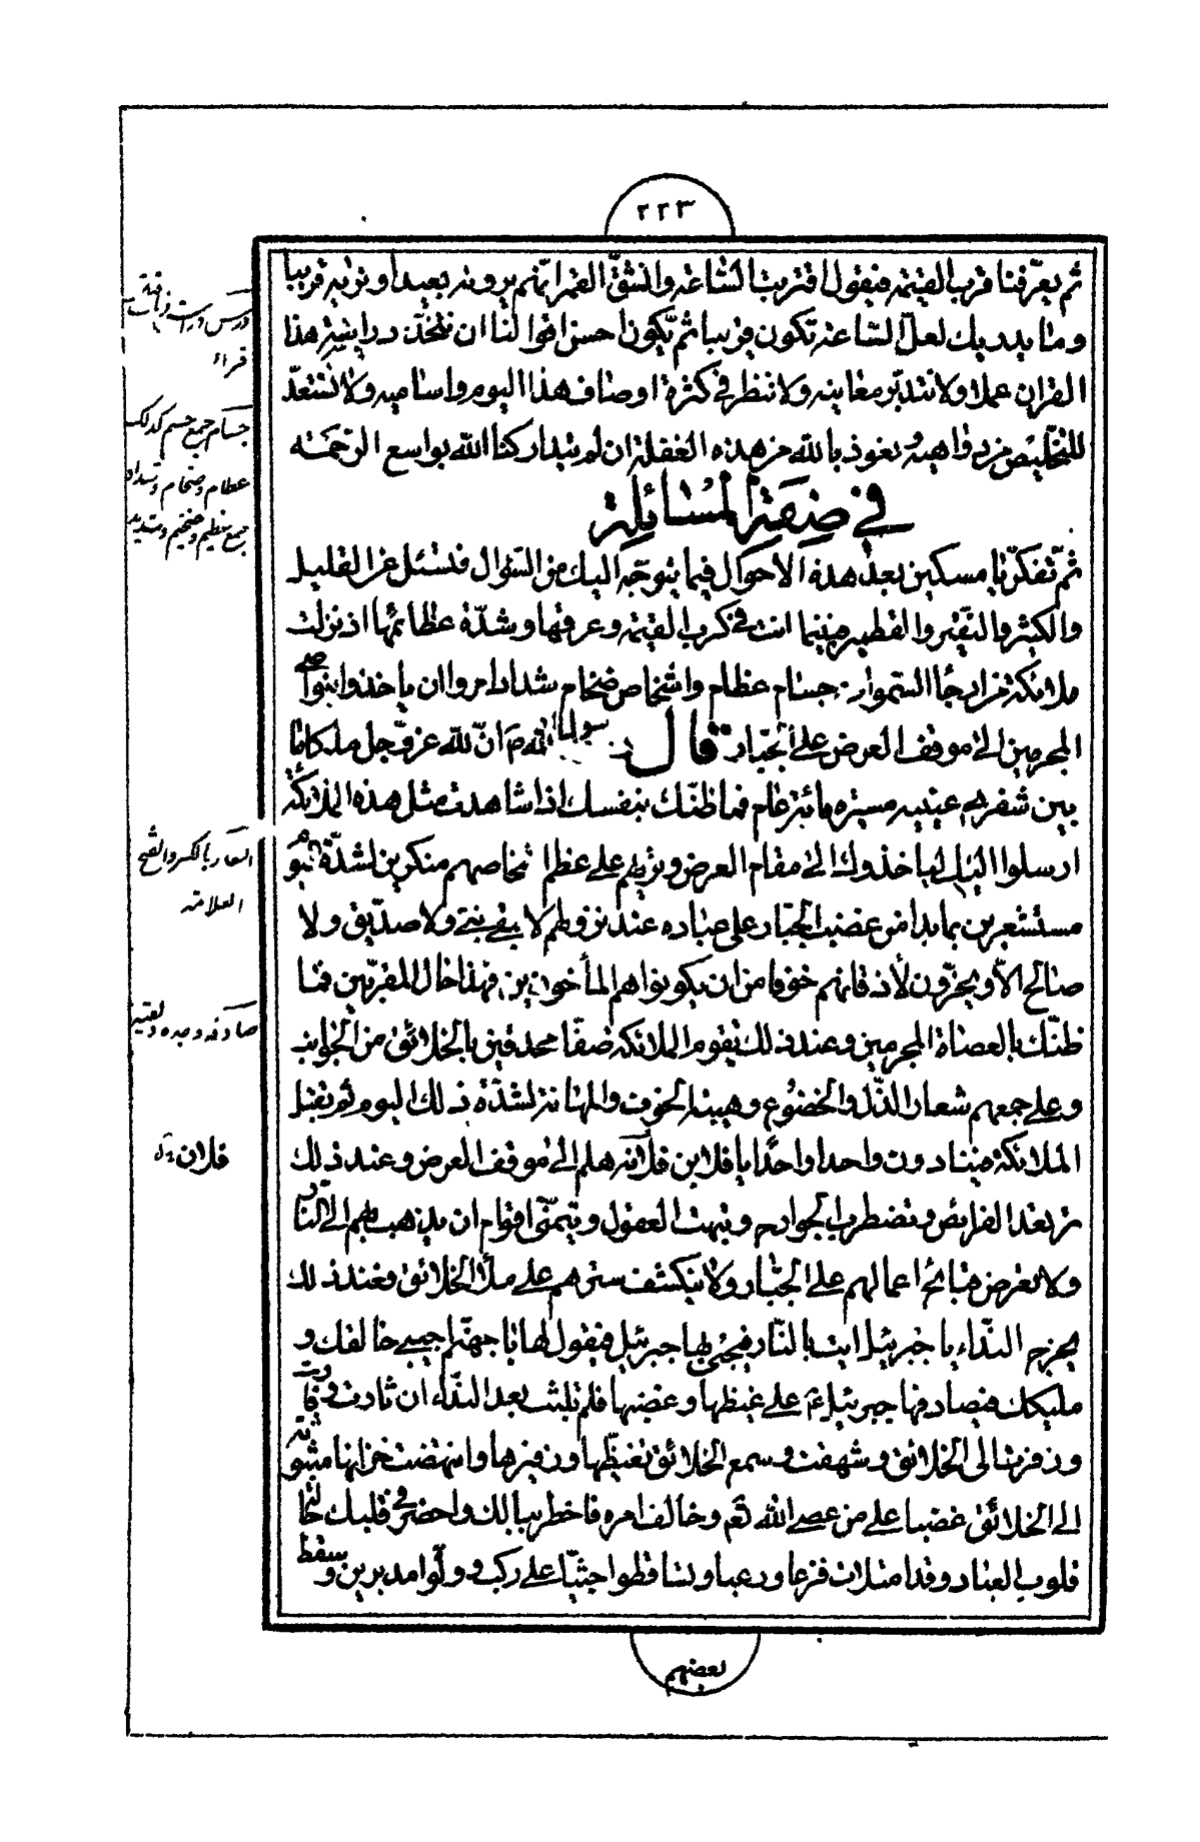 ٢٢٣
ثم يعرّفنا قرب القيمة فيقول اقتربت الساعة وانشقّ القمر انّهم يرونه بعيدا ونريه قريبا
وما يدريك لعلّ الساعة تكون قريبا ثم يكون احسن احوالنا ان نتخذ دراسة هذا
القران عملا ولا نتدبّر معانيه ولا ننظر في كثرة اوصاف هذا اليوم واساميه ولا نستعدّ
للتخليص من دواهيه ونعوذ بالله من هذه الغفلة ان لم يتداركنا الله بواسع الرحمة
في صفة المسائلة
ثمّ تفكّر يا مسكين بعد هذه الاحوال فيما يتوجّه اليك من السّؤال فتسئل عن القليل
والكثير والنقير والقطمير فبينما انت في كرب القيمة وعرقها وشدّة عظائمها اذ نزلت
ملائكة من ارجاء السّموات جسام عظام واشخاص ضخام شداد امروا ان ياخذوا بنواصى
المجرمين الى موقف العرض على الجبّار قال رسول الله ص انّ لله عزّ وجل ملكا ما
بين شفرى عينيه مسيرة مائة عام فما ظنّك بنفسك اذا شاهدت مثل هذه الملائكة
ارسلوا اليك لياخذوك الى مقام العرض وتريهم على عظم اشخاصهم منكرين لشدّة اليوم
مستشعرين بما بدا من غضب الجبّار على عباده عند نزولهم لا يبقى نبىّ ولا صدّيق ولا
صالح الّا ويخرّون لأذقانهم خوفا من ان يكونوا هم المأخوذين فهذا حال المقرّبين فما
ظنّك بالعصاة المجرمين وعند ذلك تقوم الملائكة صفّا محدقين بالخلائق من الجوانب
وعلى جمعهم شعار الذّل والخضوع وهيئة الخوف والمهانة لشدّة ذلك اليوم ثم تقبل
الملائكة فينادون واحدا واحدا يا فلان بن فلانة هلم الى موقف العرض وعند ذلك
ترتعد الفرايص وتضطرب الجوارح وتبهت العقول ويتمنّى اقوام ان يذهب بهم الى النّار
ولا تعرض قبائح اعمالهم على الجبّار ولا ينكشف سترهم على ملأ الخلائق فعند ذلك
يخرج النداء يا جبرئيل ايت بالنّار فيجئ بها جبرئيل فيقول لها يا جهنّم اجيبى خالقك و
مليكك فيصادفها جبرئيل ع على غيظها وغضبها فلم تلبث بعد النّداء ان ثارت وفارت
وزفرت الى الخلائق وشهقت وسمع الخلائق تغيّظها وزفيرها وانتهضت خزانها متوثّبة
الى الخلائق غضبا على من عصى الله تع وخالف امره فاخطر ببالك واحضر في قلبك حالة
قلوب العباد وقد امتلات فزعا ورعبا وتساقطوا جثيّا على ركب وولّوا مدبرين وسقط
بعضهم
قراء
جسام جمع جسم كذلك
عظام وضخام وشداد
جمع عظيم وضخيم وشديد
الشعار بالكسر والفتح
العلامة
صادفه وجده ولقيه
فلان